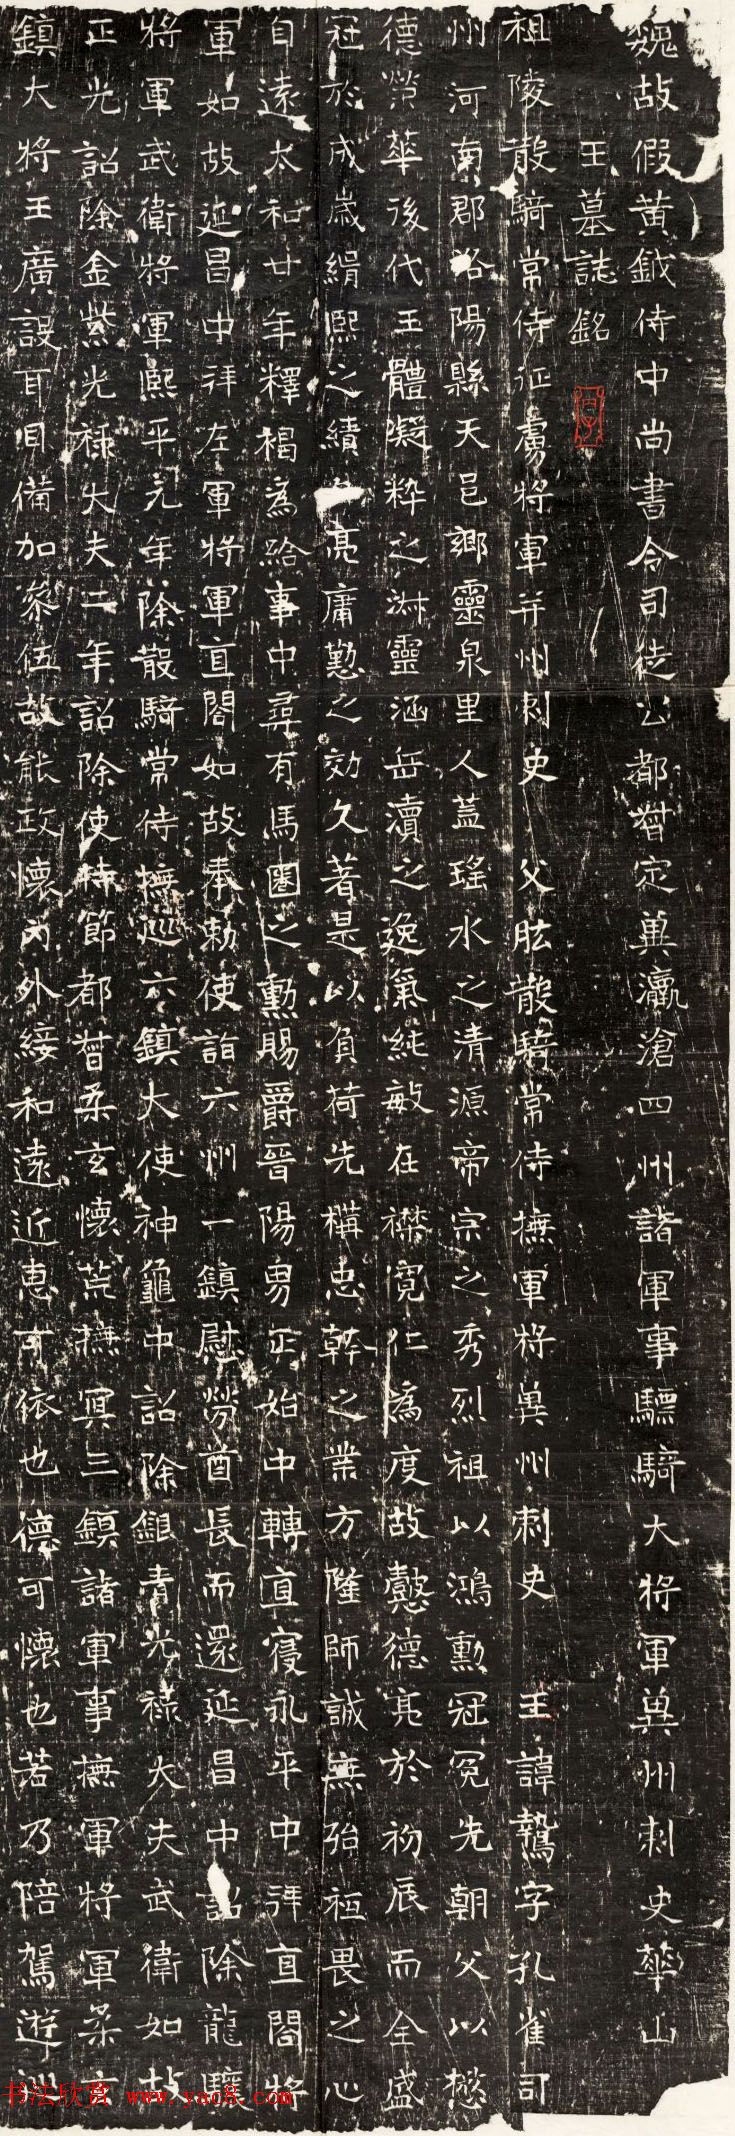 魏故假黄鉞侍中尚書令司徒公都督定冀瀛滄四州諸軍事驃騎大將軍冀州刺史華山
王墓誌銘
祖陵散騎常侍征虜將軍并州刺史 父肱散騎常侍撫軍將冀州刺史 王諱鷙字孔雀司
州河南郡洛陽縣天邑鄉靈泉里人蓋瑤水之清源帝宗之秀烈祖以鴻勳冠冕先朝父以懋
德榮華後代王體凝粹之淋靈涵岳瀆之逸氣純敏在襟寬仁為度故懿德亮於初辰而全盛
冠於成歲緝熙之績亮庸懃之効久著是以負荷先構忠幹之業方隆師誠無殆祗畏之心
自遠太和廿年釋褐為給事中尋有馬圈之勳賜爵晉陽男正始中轉直寢永平中拜直閤將
軍如故延昌中拜左軍將軍直閤如故奉勅使詣六州一鎮慰勞酋長而還延昌中詔除龍驤
將軍武衛將軍熙平元年除散騎常侍撫巡六鎮大使神龜中詔除銀青光祿大夫武衛如故
正光詔除金紫光祿大夫二年詔除使持節都督柔玄懷荒撫冥三鎮諸軍事撫軍將軍柔
鎮大將王廣設耳目備加參伍故能政懷內外綏和遠近惠可依也德可懷也若乃陪駕遊
书法欣赏 www.yac8.com